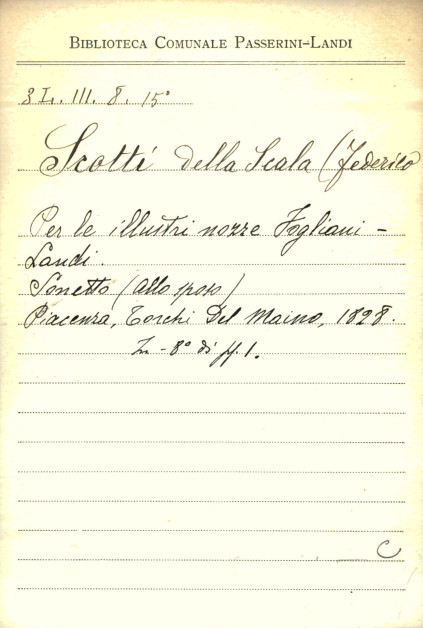 BIBLIOTECA COMUNALE PASSERINI-LANDI
3 L. III. 8. 15°
Scotti della Scala (Federico
Per le illustri nozze Fogliani -
Landi.
Sonetto (allo sposo)
Piacenza, Torchi Del Maino, 1828.
In - 8° di ff. 1.
C